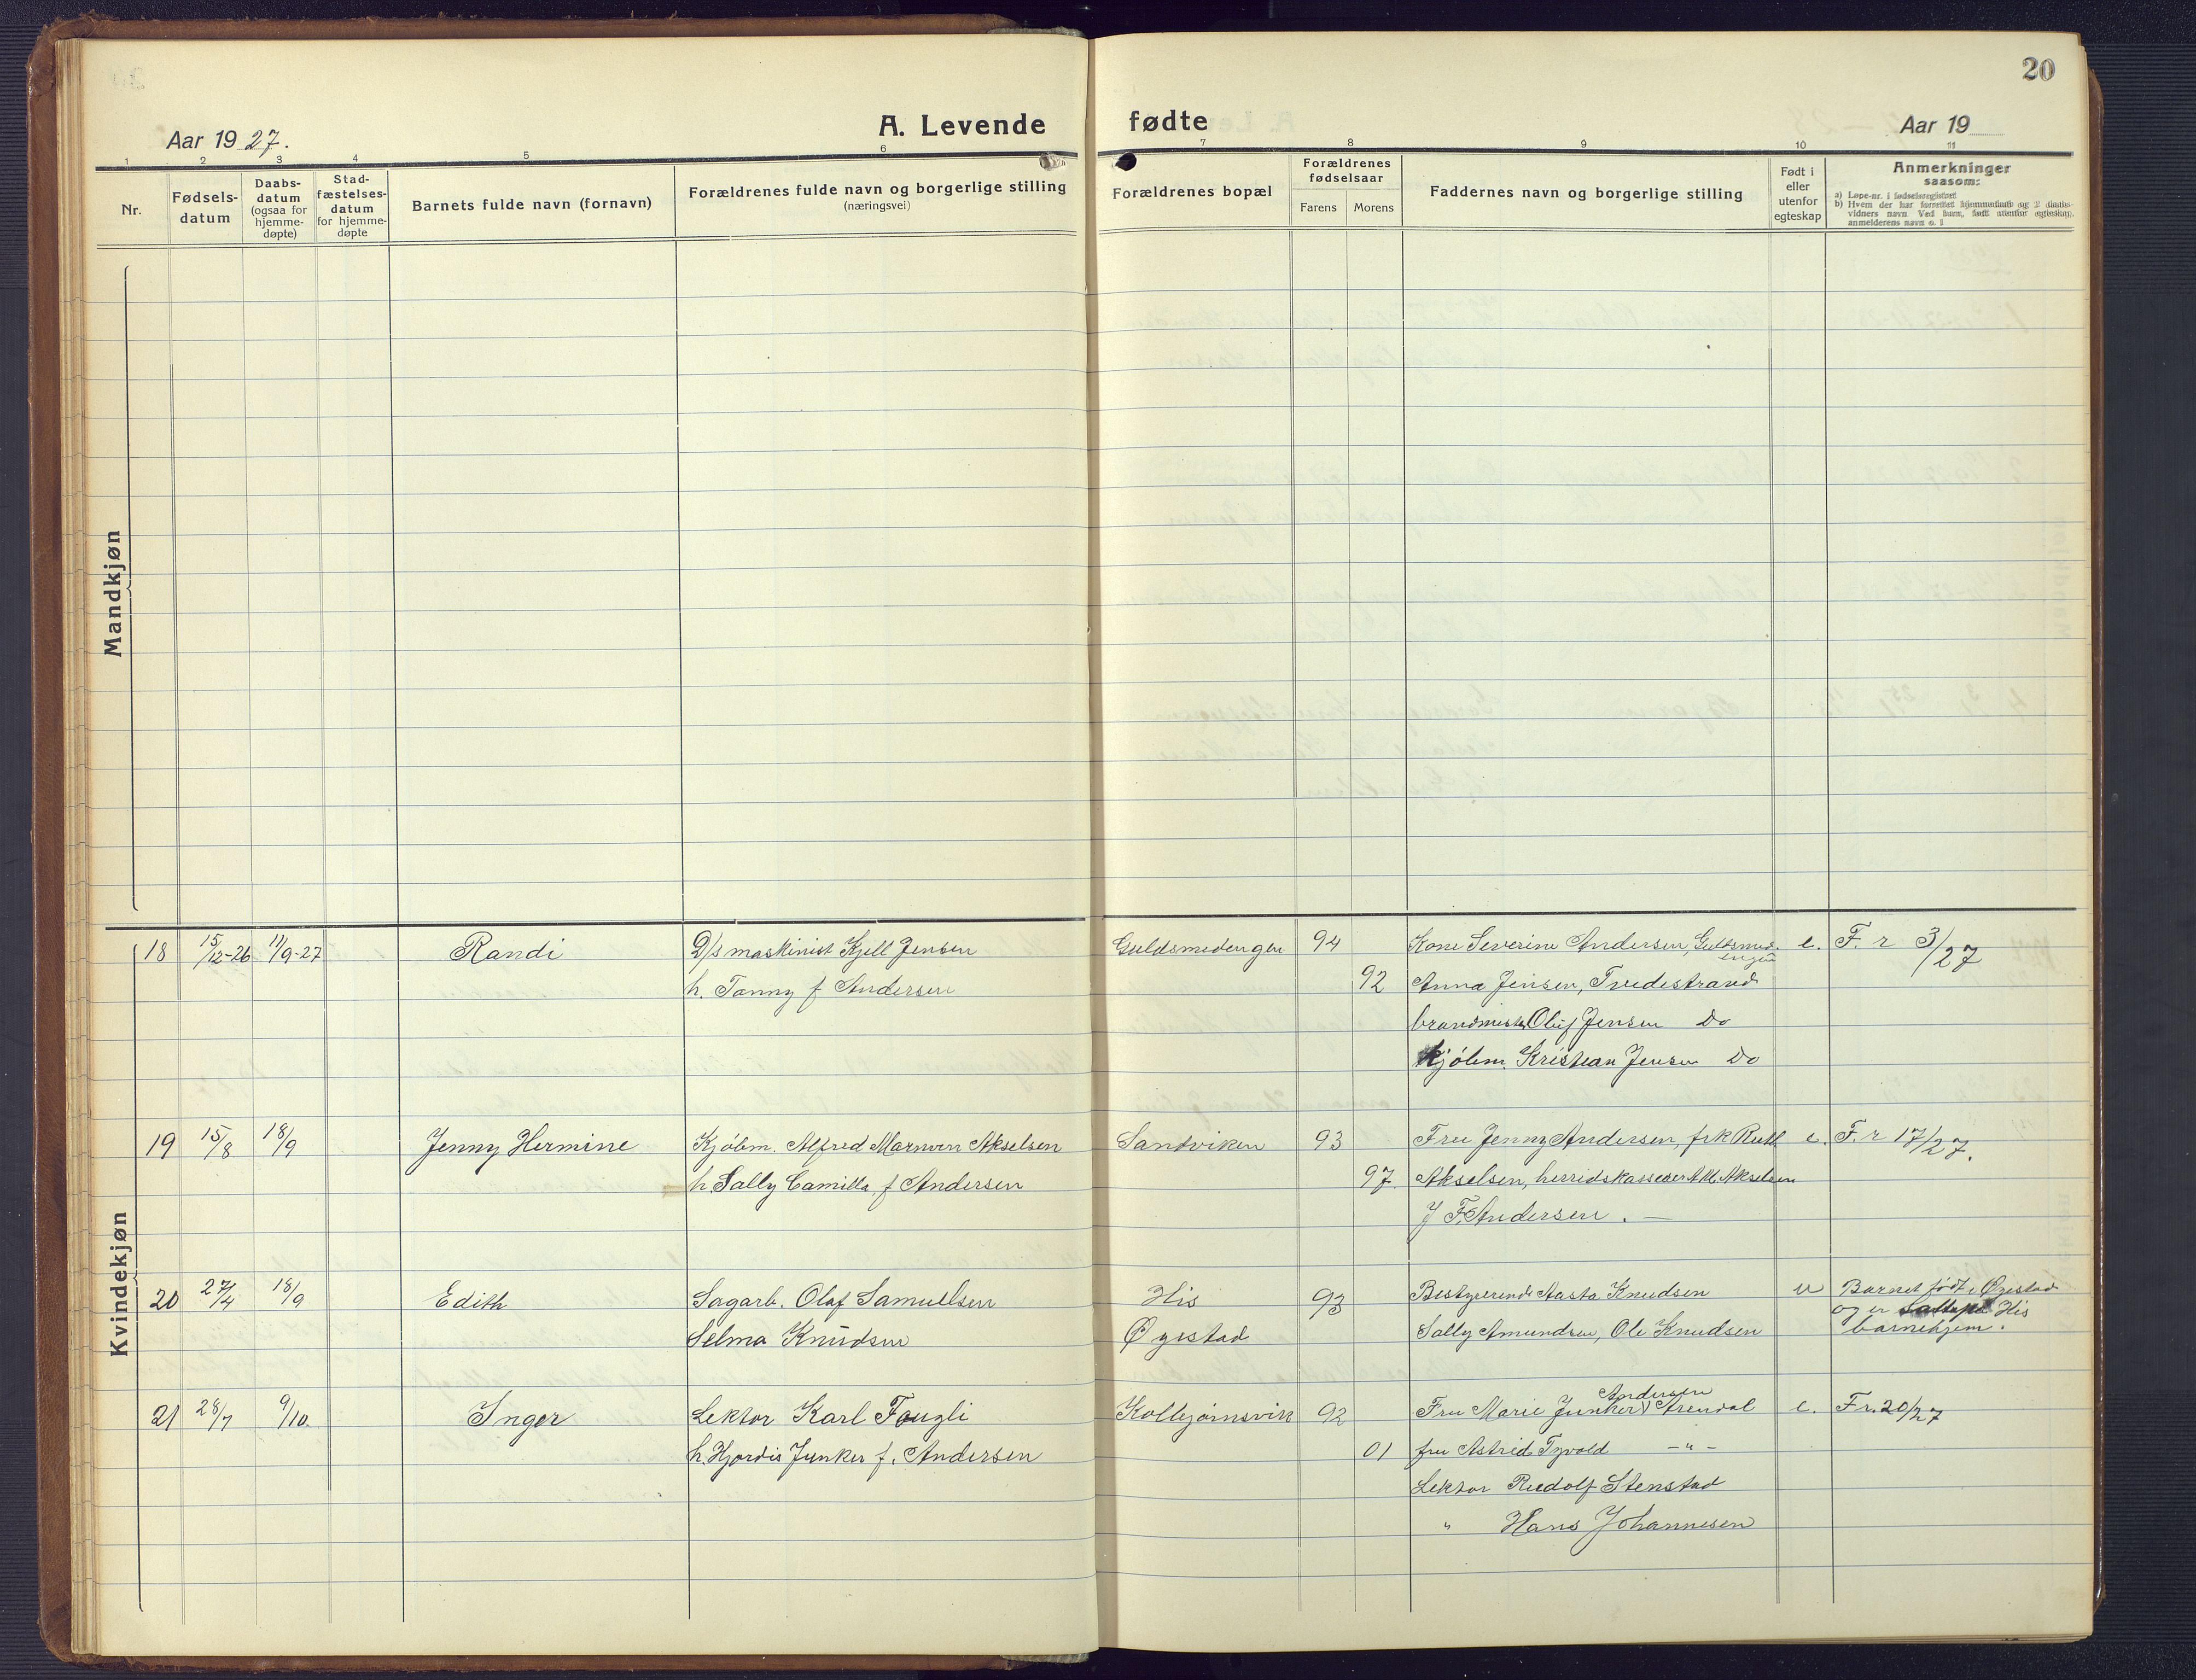 20
A. Levende fødte
Aar 1927.
Aar 19
1 2 3 4 5 6 7 8 9 10 11
Nr.
Fødsels-
datum
Daabs-
datum
(ogsaa for
hjemme-
døpte)
Stad-
fæstelses-
datum
for hjemme-
døpte
Barnets fulde navn (fornavn)
Forældrenes fulde navn og borgerlige stilling
(næringsvei)
Forældrenes bopæl
Forældrenes
fødselsaar
Farens Morens
Faddernes navn og borgerlige stilling
Født i
eller
utenfor
egteskap
Anmerkninger
saasom:
a) Løpe-nr. i fødselsregistret
b) Hvem der har forrettet hjemmedaab og 2 daabs-
vidners navn Ved barn, født utenfor egteskap,
anmelderens navn o. l
Mandkjøn
Kvindekjøn
18 15/12-26 11/9-27 Randi D/s maskinist Kjell Jensen Guldsmedengen 94 Kone Severine Andersen, Guldsmed- e. F. r 3/27
engen
h. Tanny f Andersen 92 Anna Jensen, Tvedestrand
brandmester Oluf Jensen Do
Kjøbm. Kristian Jensen Do
19 15/8 18/9 Jenny Hermine Kjøbm. Alfred Marwen Akselsen Sandviken 93 Fru Jenny Andersen, frk Ruth e. F. r 17/27.
h Sally Camilla f Andersen 97 Akselsen, herridskasserer A M. Akselsen
J F. Andersen. —
20 27/4 18/9 Edith Sagarb. Olaf Samuelsen His 93 Bestyrerinde Aasta Knudsen u Barnet født i Øyestad
og er His
Selma Knudsen Øyestad Sally Amundsen, Ole Knudsen barnehjem.
21 28/7 9/10 Inger Lektor Karl Fougli Kolbjørnsvik 92 Fru Marie Junker Andersen Arendal e. F r. 20/27
h. Hjordis Junker f. Andersen 01 fru Astrid Tyvold —"—
Lektor Rudolf Stenstad
" Hans Johannesen